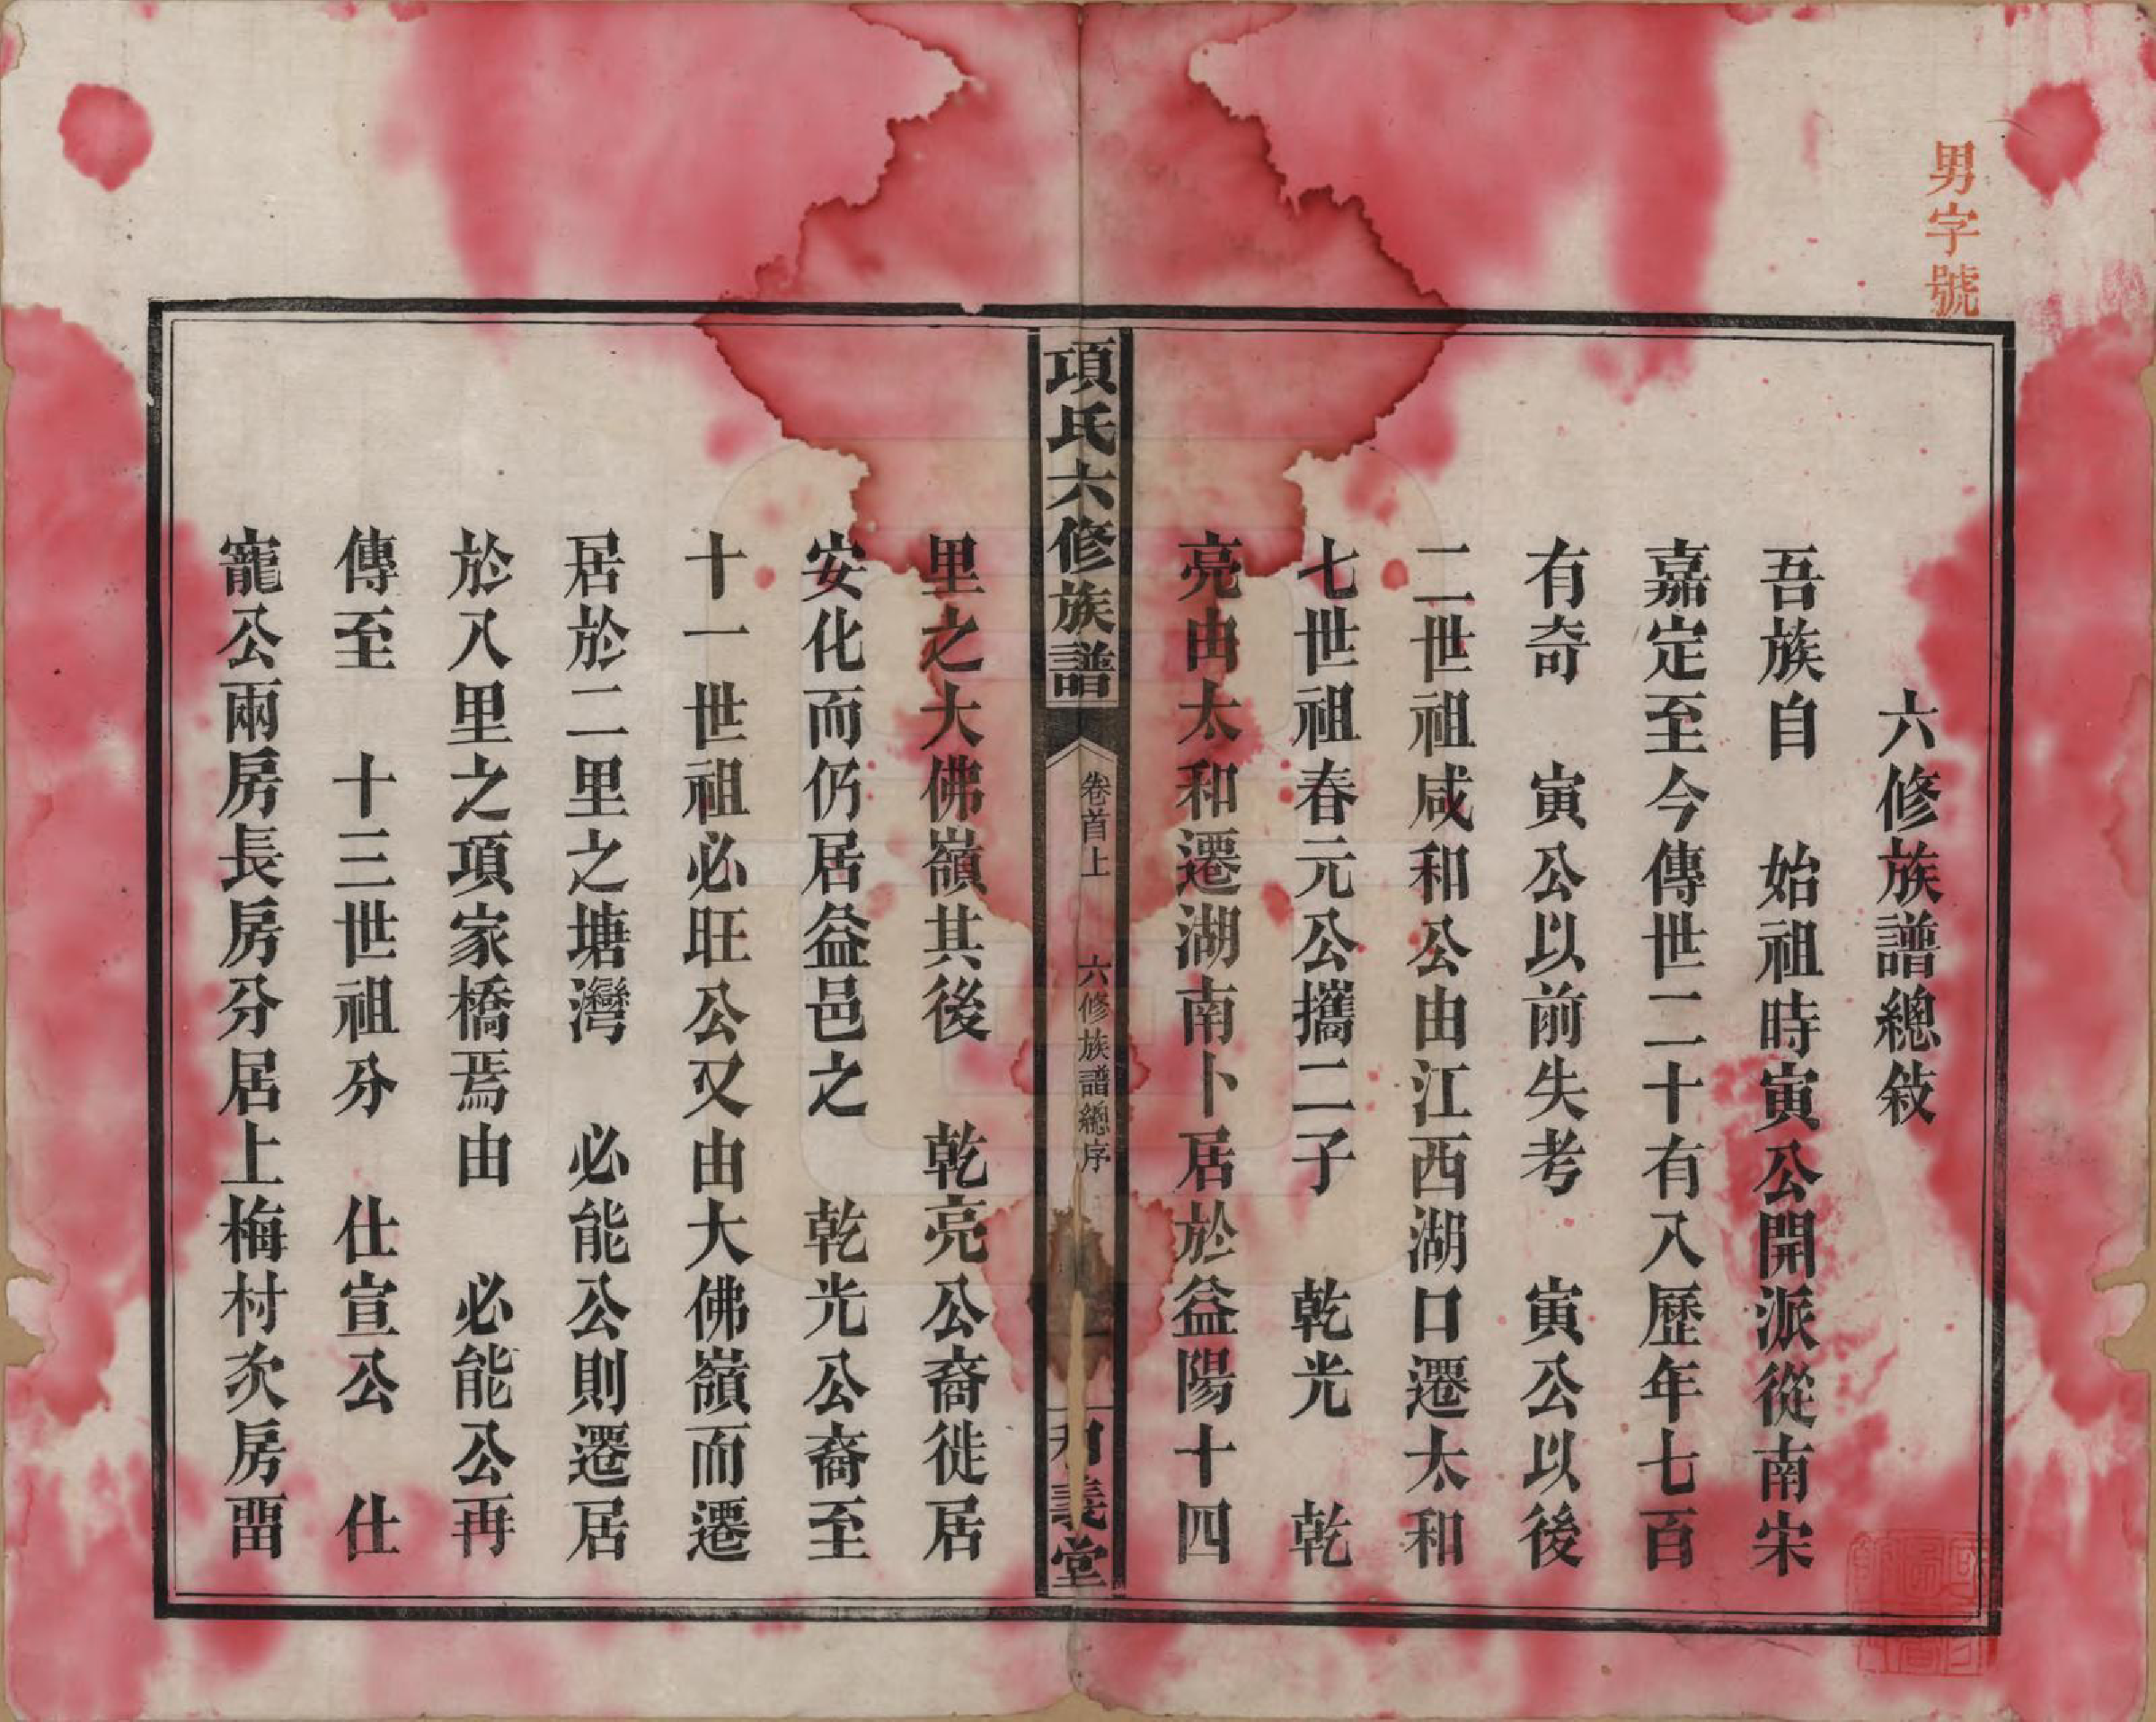 男字號
六修族譜總敘
吾族自　始祖時寅公開派從南宋
嘉定至今傳世二十有八歷年七百
有奇　寅公以前失考　寅公以後
二世祖咸和公由江西湖口遷太和
七世祖春元公攜二子　乾光　乾
亮由太和遷湖南卜居於益陽十四
項氏六修族譜
卷首上
六修族譜總序
一
和義堂
里之大佛嶺其後　乾亮公裔徙居
安化而仍居益邑之　乾光公裔至
十一世祖必旺公又由大佛嶺而遷
居於二里之塘灣　必能公則遷居
於八里之項家橋焉由　必能公再
傳至　十三世祖分　仕宣公　仕
寵公兩房長房分居上梅村次房畱